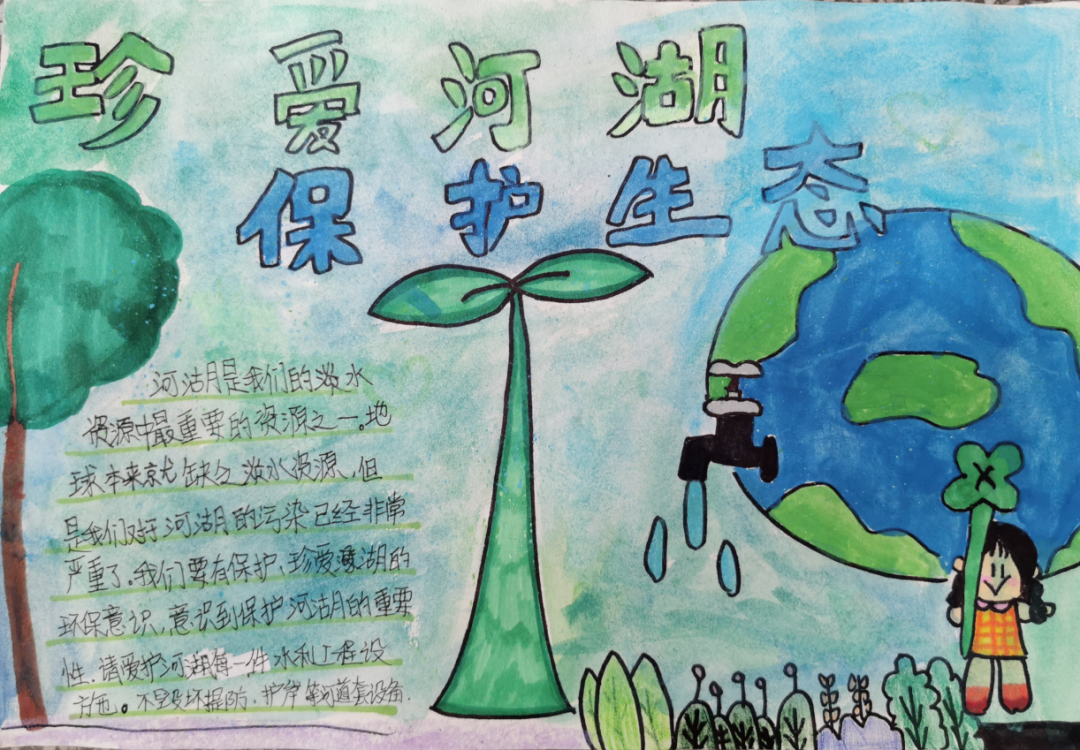 珍爱河湖
保护生态
河湖是我们的淡水
资源中最重要的资源之一。地
球本来就缺乏淡水资源、但
是我们对河湖的污染已经非常
严重了、我们要有保护、珍爱湖的
环保意识、意识到保护河湖的重要
性、请爱护河湖每一件水利工程设
方也。不毁坏堤防、护岸等河道套设备.